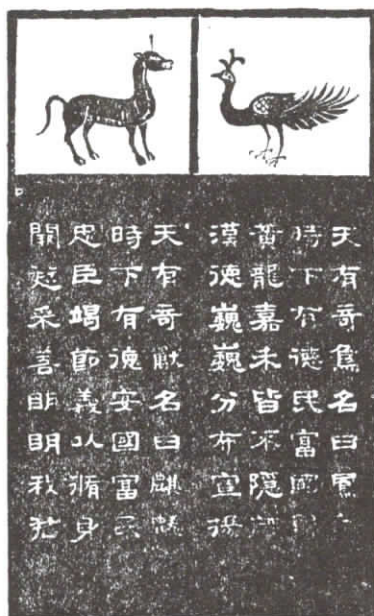 天有奇鳥名曰鳳
時下有德民富國
黃龍嘉禾皆不隱
漢德巍巍分布宣揚
天有奇獸名曰麒麟
時下有德安國富民
忠臣竭節義以脩身
闕愆采善明明我